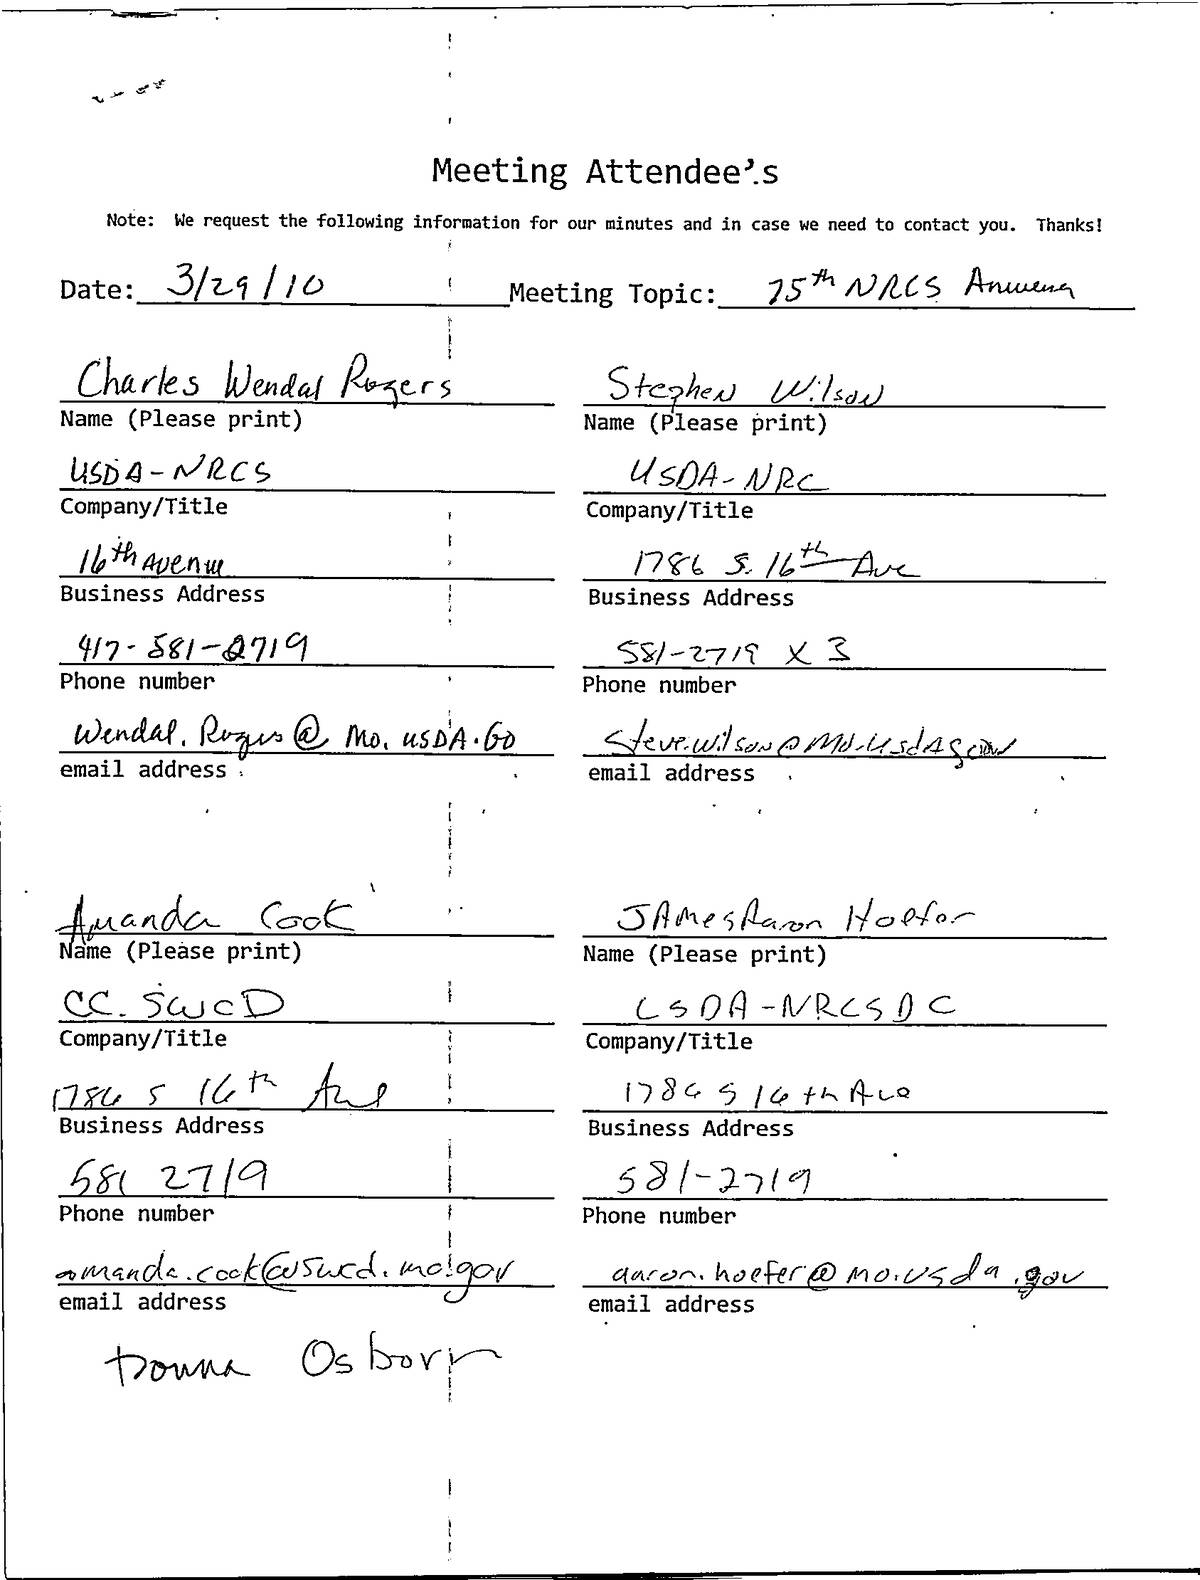 Meeting Attendee's
Note: We request the following information for our minutes and in case we need to contact you. Thanks!
Date: 3/29/10 Meeting Topic: 75th NRCS
Charles Wendal Rogers
Name (Please print)
USDA-NRCS
Company/Title
16th Avenue
Business Address
417-581-2719
Phone number
Wendal.Rogers@mo.USDA.Go
email address
Stephen Wilson
Name (Please print)
USDA-NRC
Company/Title
1786 S. 16th Ave
Business Address
581-2719 X 3
Phone number
Steve.wilson@Mo.Usda gov
email address
Amanda Cook
Name (Please print)
CC. SWCD
Company/Title
1786 S 16th Ave
Business Address
581 2719
Phone number
amanda.cook@swcd.mo.gov
email address
JAmes Aaron Hoefer
Name (Please print)
USDA-NRCS DC
Company/Title
1786 S 16th Ave
Business Address
581-2719
Phone number
aaron.hoefer@mo.usda.gov
email address
Donna Osborn